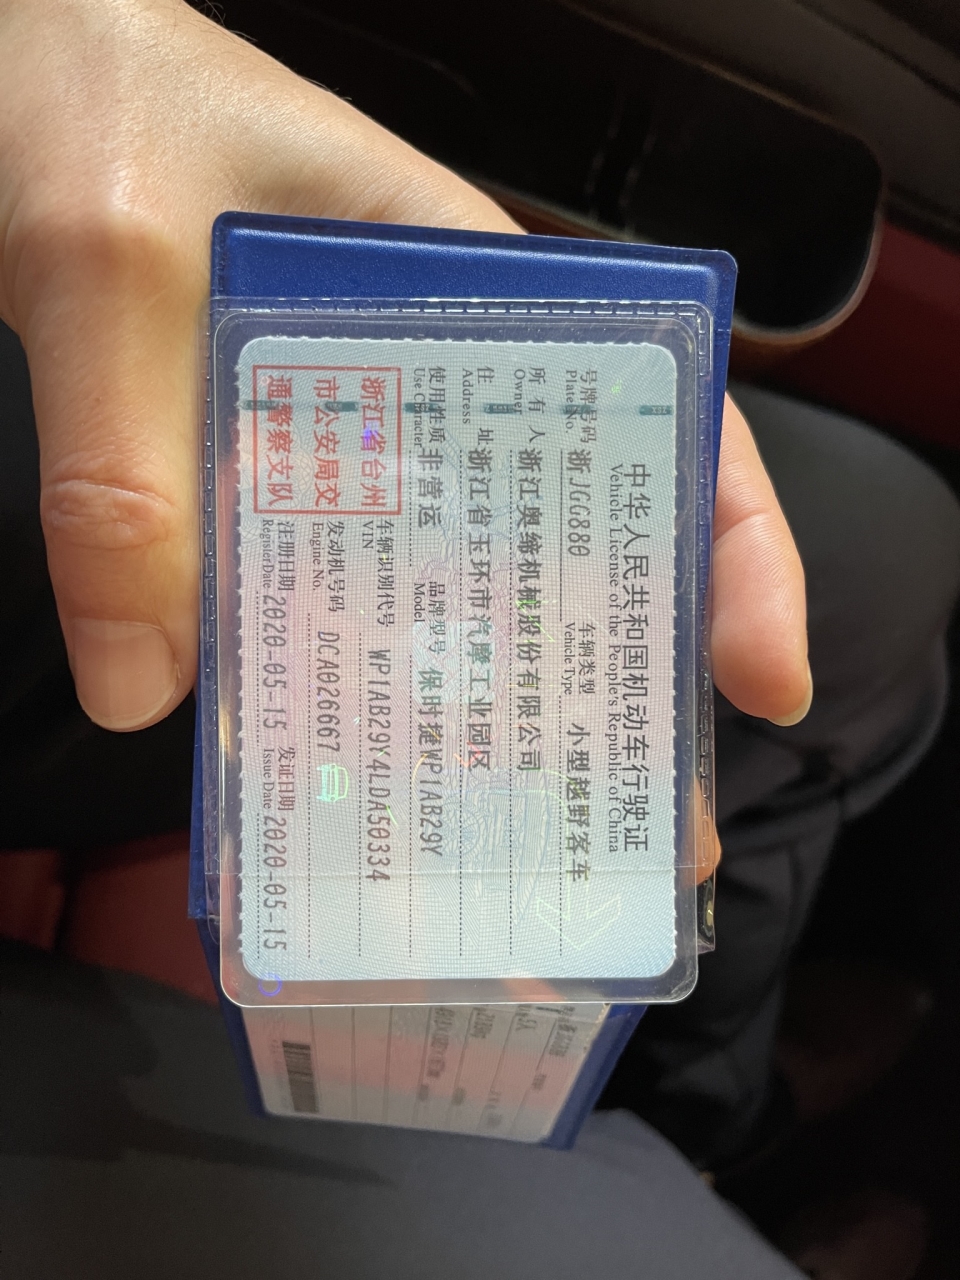 中华人民共和国机动车行驶证
Vehicle License of the People's Republic of China
号牌号码 浙JGG880 车辆类型 小型越野客车
Plate No. Vehicle Type
所有人 浙江奥缔机械股份有限公司
Owner
住址 浙江省玉环市汽摩工业园区
Address
使用性质 非营运 品牌型号 保时捷WP1AB29Y
Use Character Model
浙江省台州
市公安局交
通警察支队
车辆识别代号 WP1AB29Y4LDA50334
VIN
发动机号码 DCA026667
Engine No.
注册日期 2020-05-15 发证日期 2020-05-15
Register Date Issue Date